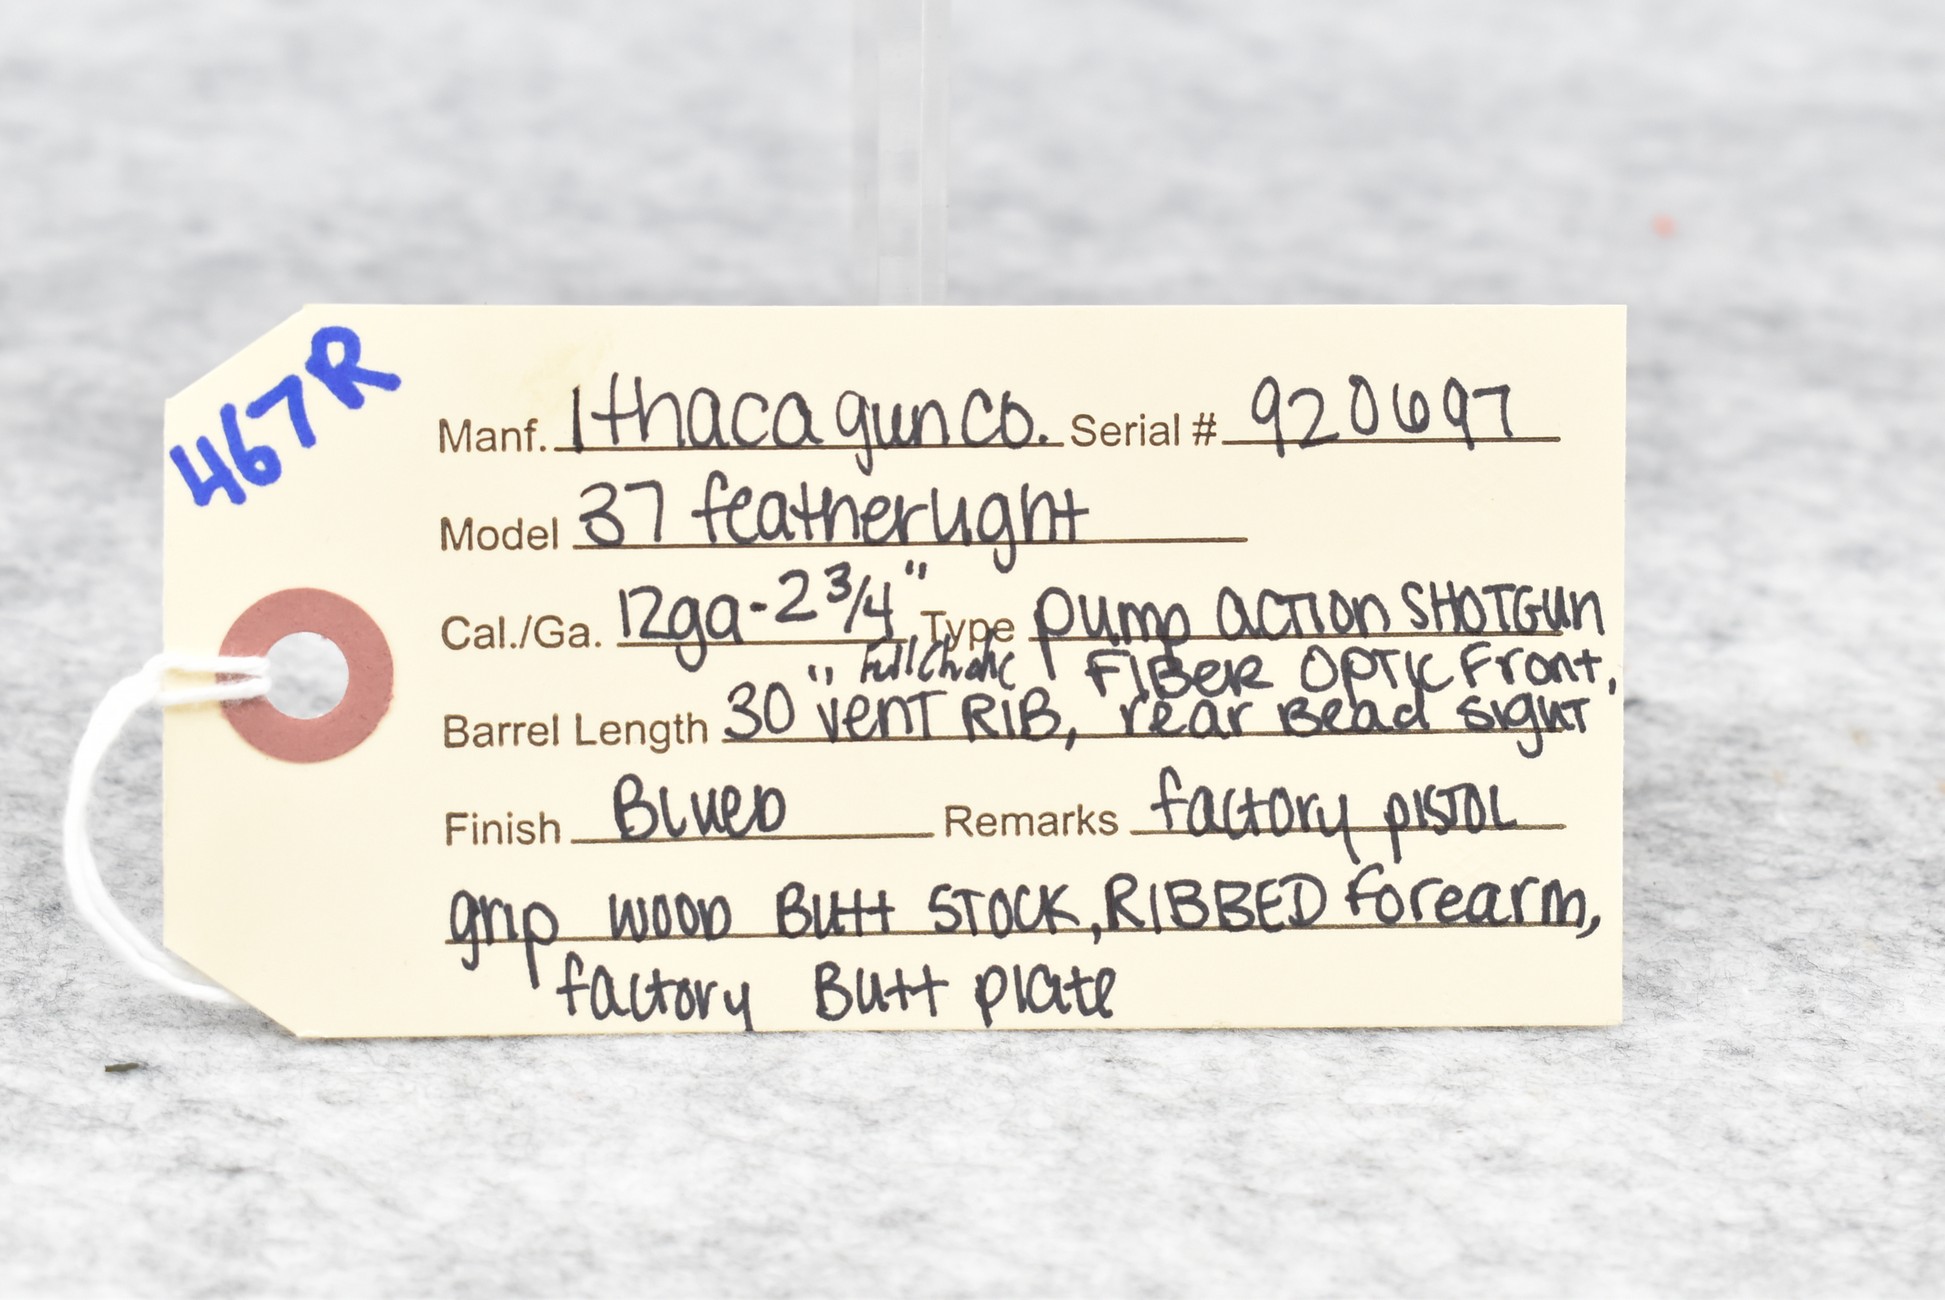 467R
Manf. Ithaca gun co. Serial # 920697
Model 37 featherlight
Cal./Ga. 12ga - 2 3/4" Type pump action SHOTGun
Full Choke FIBER OPTIC Front,
Barrel Length 30" vent RIB, rear Bead sight
Finish Blued Remarks factory pistol
grip wood Butt STOCK, RIBBED forearm,
factory Butt plate